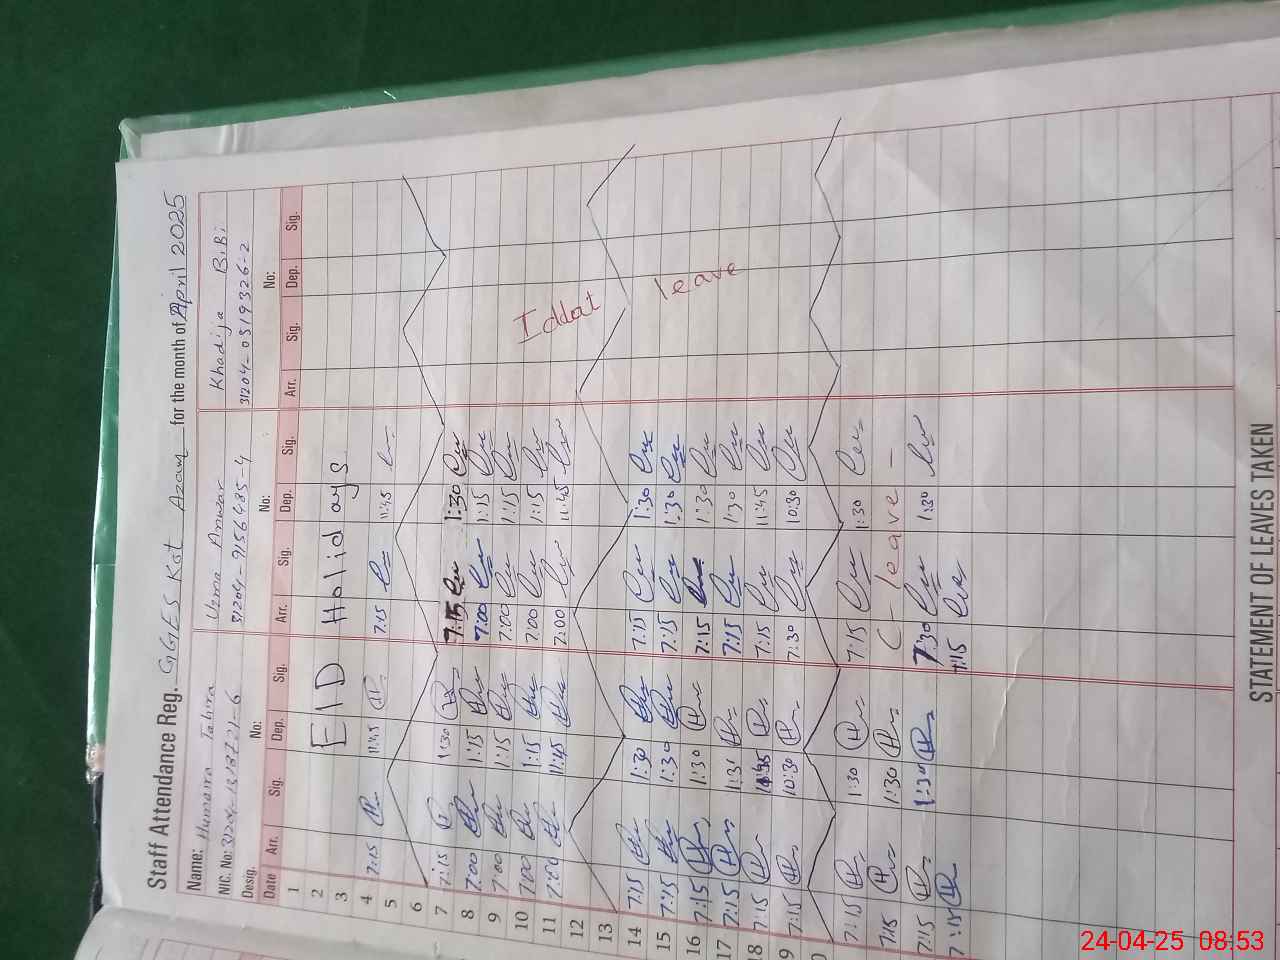 Staff Attendance Reg. GGES Kot Azam for the month of April 2025
Name: Humaira Tahira Uzma Anwar Khadija BiBi
NIC. No: 31204-9156485-4 31204-0319326-2
Desig. No: No: No:
Date Arr. Sig. Dep. Sig. Arr. Sig. Dep. Sig. Arr. Sig. Dep. Sig.
1
2 EID Holidays
3
4 7:15 11:45 7:15 11:45
5
6
7 7:15 1:30 7:15 1:30
8 7:00 1:15 7:00 1:15
9 7:00 1:15 7:00 1:15
10 7:00 1:15 7:00 1:15
11 7:00 11:45 7:00 11:45
12 Iddat leave
13
14 7:15 1:30 7:15 1:30
15 7:15 1:30 7:15 1:30
16 7:15 1:30 7:15 1:30
17 7:15 7:15 1:30
18 7:15 7:15 11:45
9 7:15 10:30 7:30 10:30
0
7:15 1:30 7:15 1:30
7:15 1:30 ( leave -
7:15 1:30 7:30 1:30
7:15 7:15
STATEMENT OF LEAVES TAKEN
24-04-25 08:53